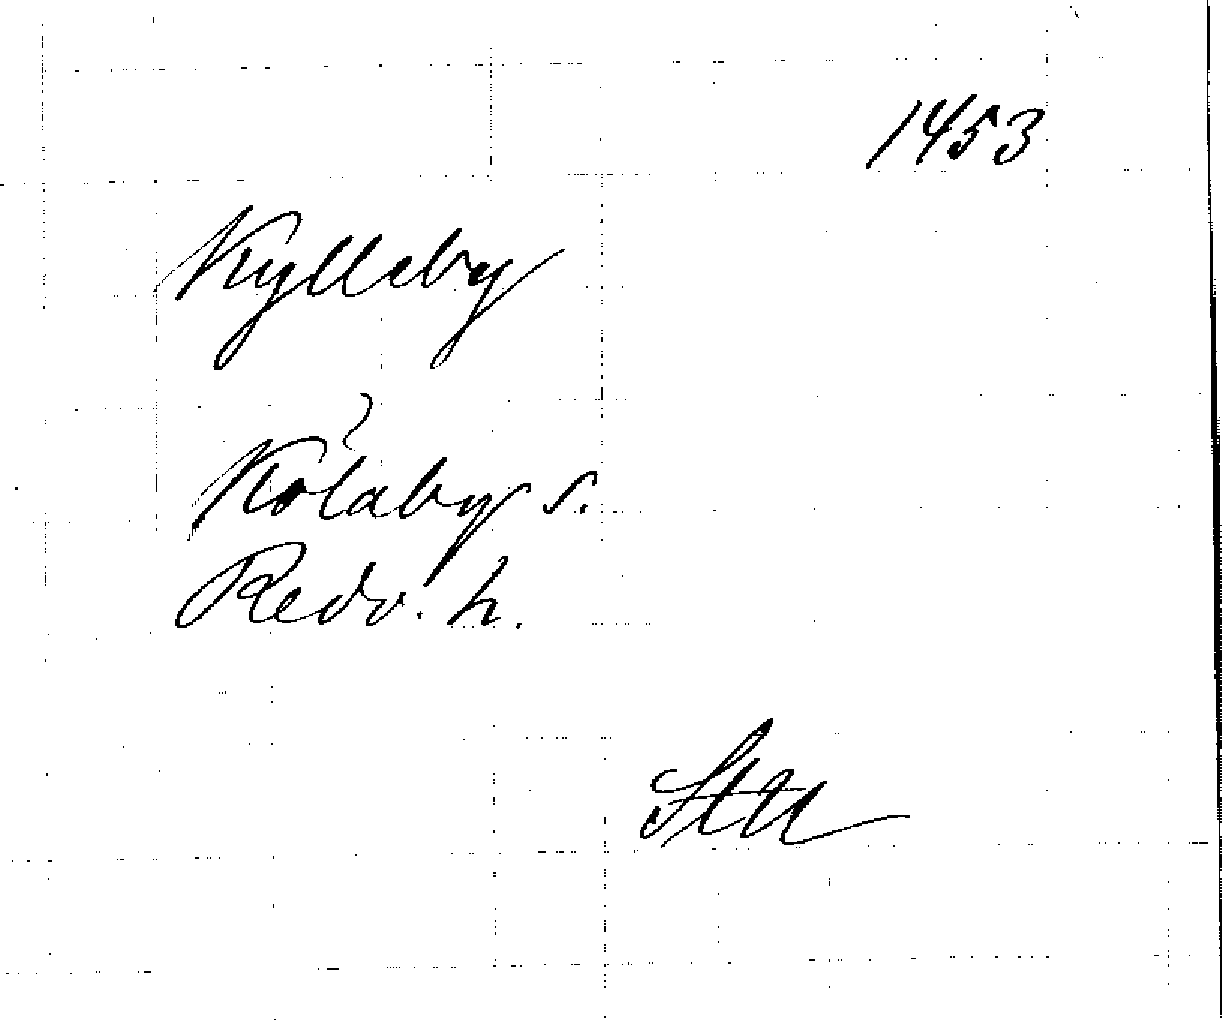 1453
Kylleby
Kölaby s.
Redv. h.